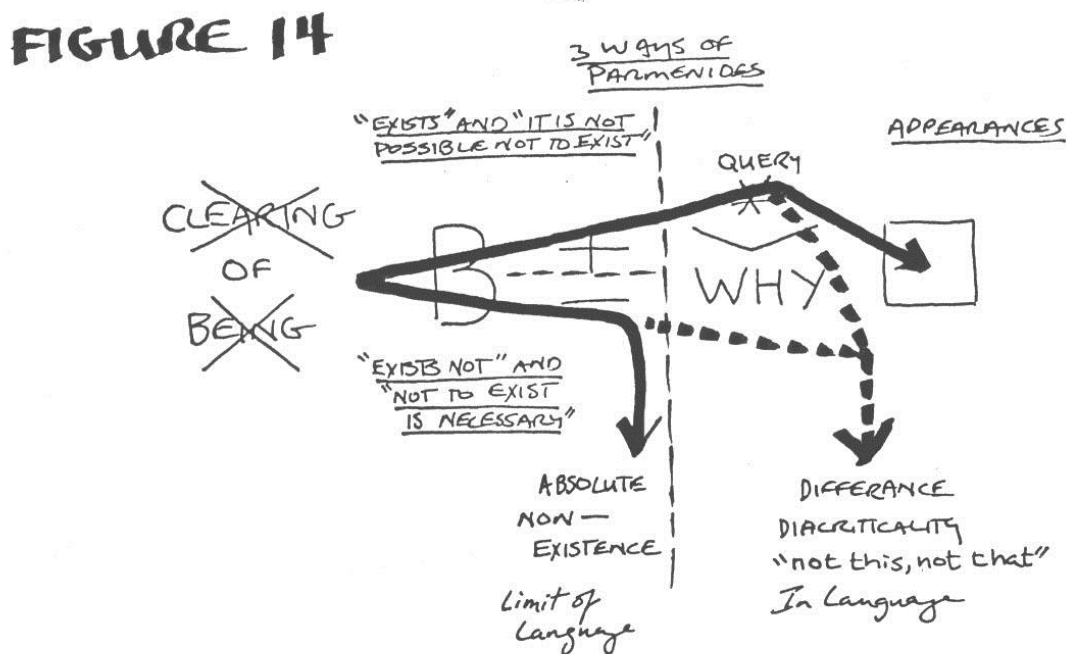 FIGURE 14
3 WAYS OF
PARMENIDES
"EXISTS" AND "IT IS NOT
POSSIBLE NOT TO EXIST"
APPEARANCES
QUERY
CLEARING
OF
BEING
B
+
WHY
"EXISTS NOT" AND
"NOT TO EXIST
IS NECESSARY"
ABSOLUTE
NON —
EXISTENCE
Limit of
Language
DIFFERANCE
DIACRITICALITY
"not this, not that"
In Language